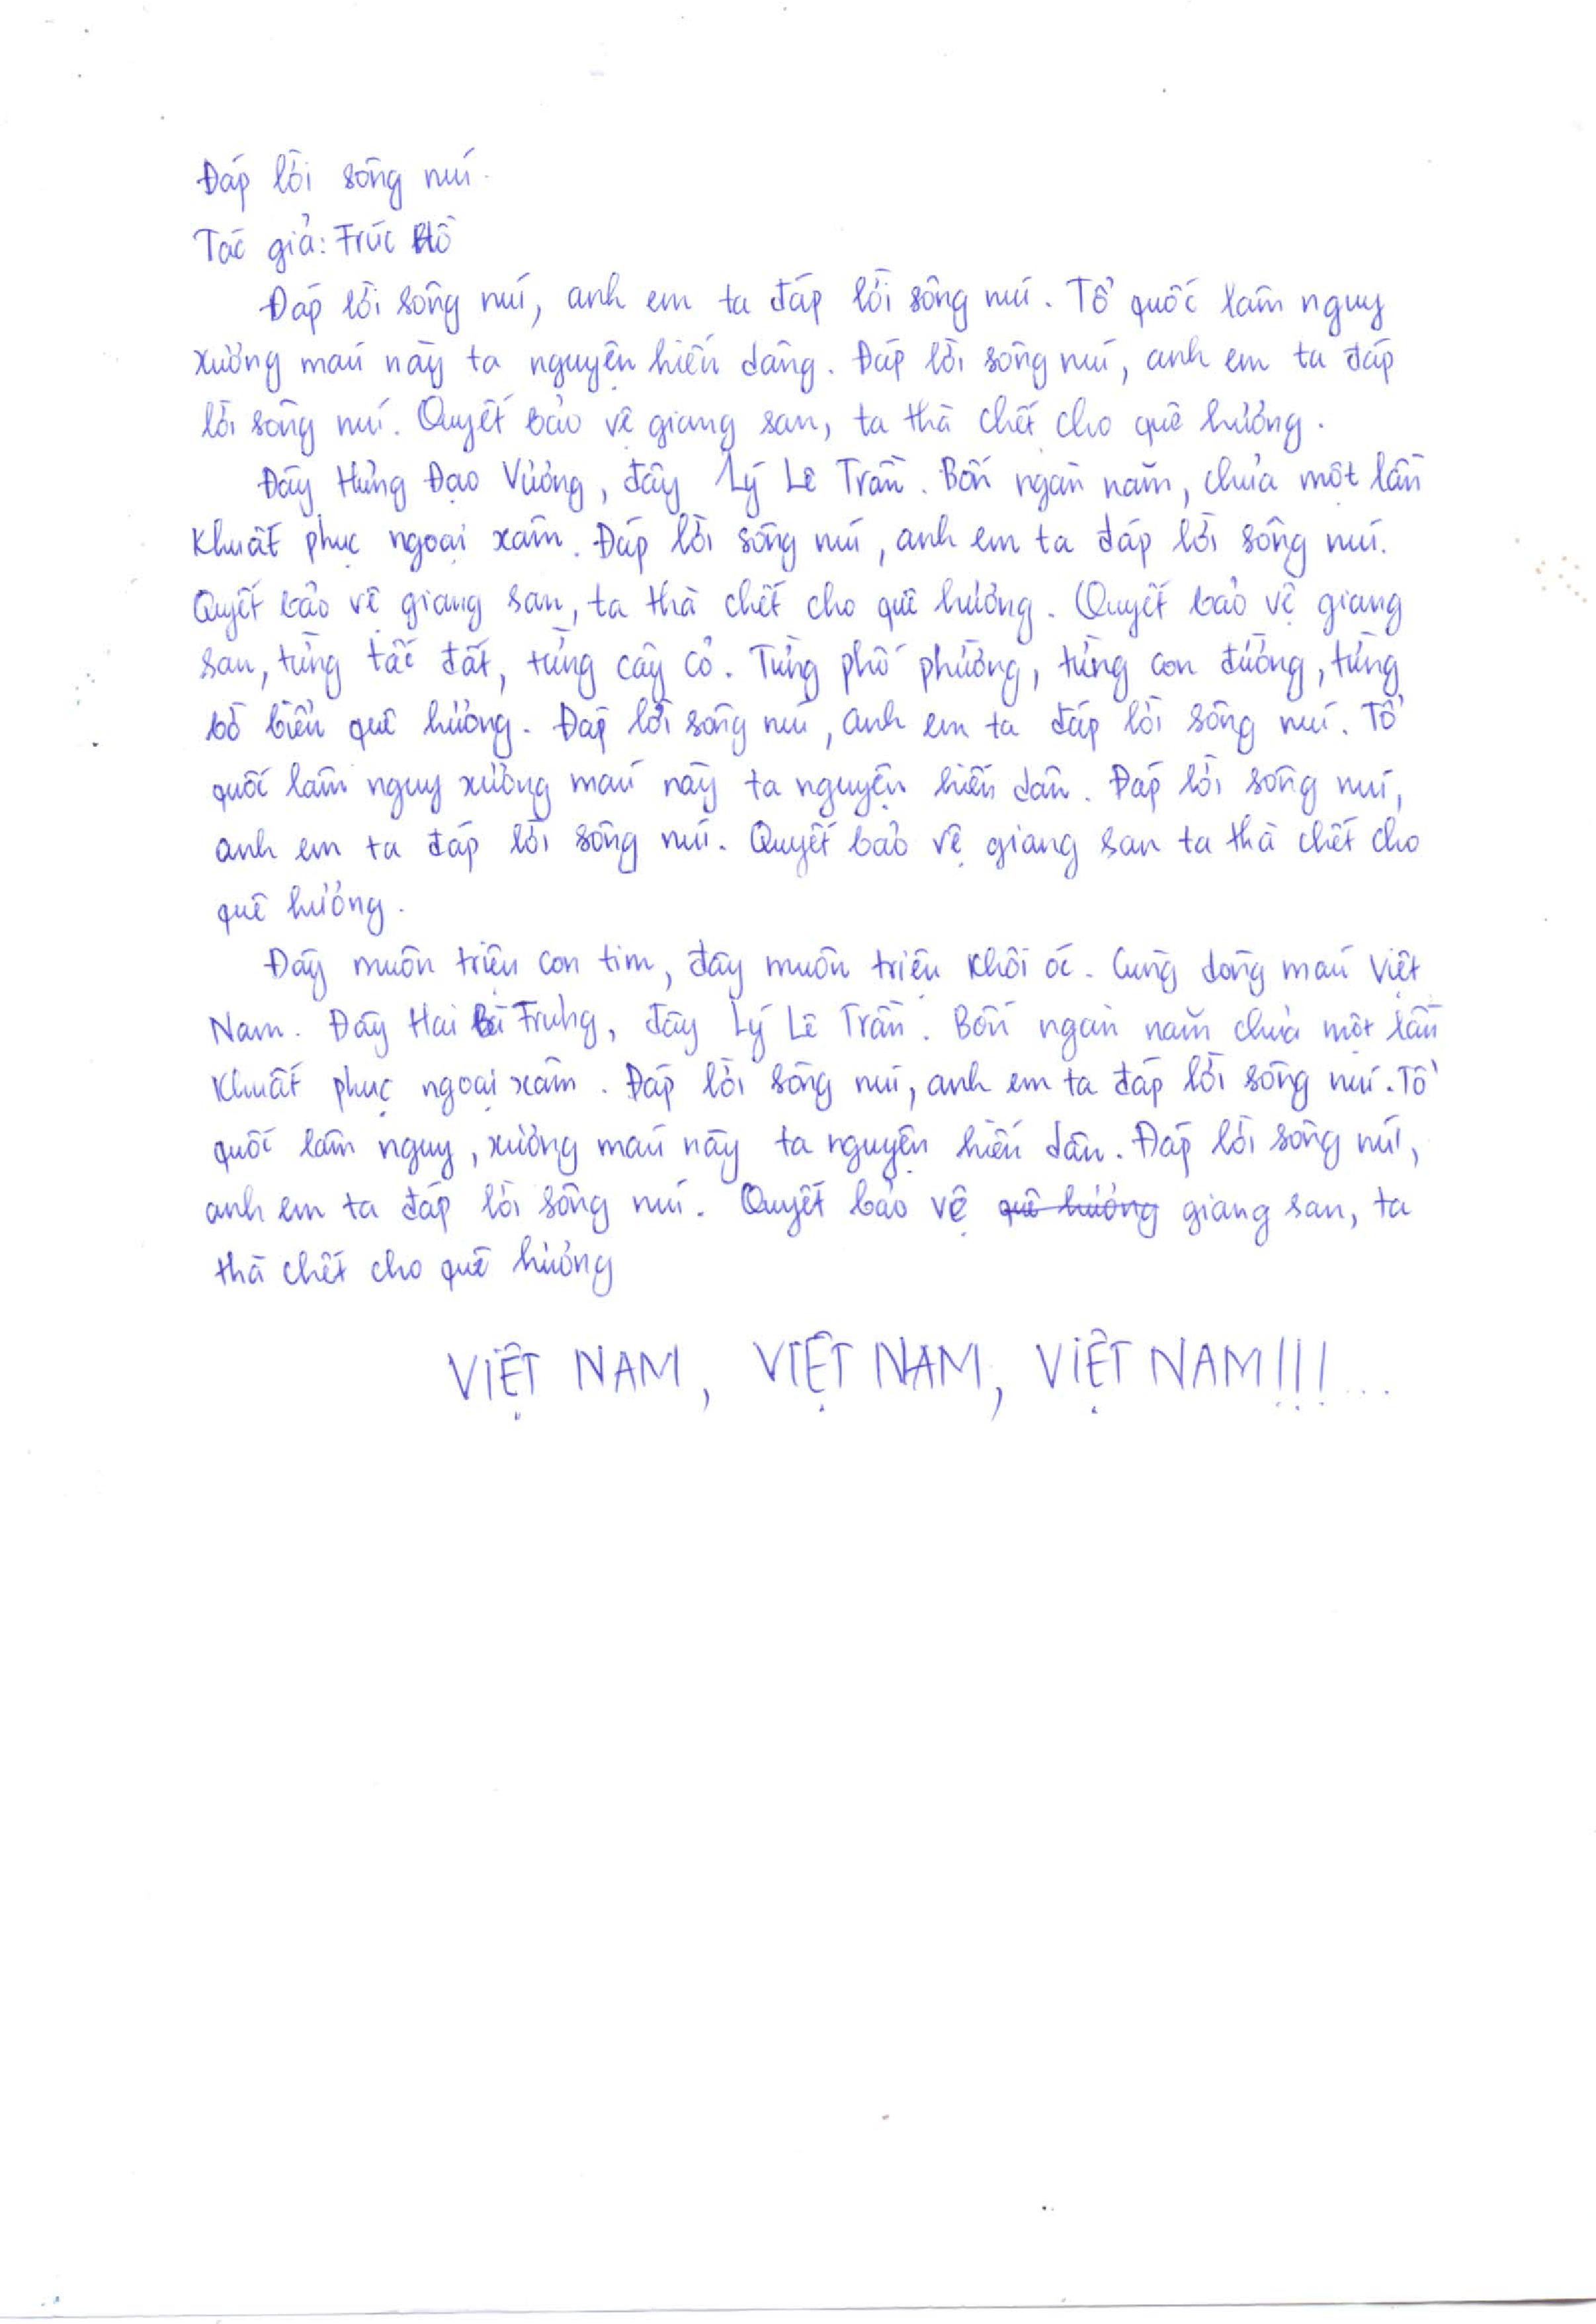 Đáp lời sông núi.
Tác giả: Trúc Hồ
Đáp lời sông núi, anh em ta đáp lời sông núi. Tổ quốc lâm nguy
xương máu này ta nguyện hiến dâng. Đáp lời sông núi, anh em ta đáp
lời sông núi. Quyết bảo vệ giang san, ta thà chết cho quê hương.
Đây Hưng Đạo Vương, đây Lý Lê Trần. Bốn ngàn năm, chưa một lần
khuất phục ngoại xâm. Đáp lời sông núi, anh em ta đáp lời sông núi.
Quyết bảo vệ giang san, ta thà chết cho quê hương. Quyết bảo vệ giang
san, từng tấc đất, từng cây cỏ. Từng phố phường, từng con đường, từng
bờ biển quê hương. Đáp lời sông núi, anh em ta đáp lời sông núi. Tổ
quốc lâm nguy xương máu này ta nguyện hiến dân. Đáp lời sông núi,
anh em ta đáp lời sông núi. Quyết bảo vệ giang san ta thà chết cho
quê hương.
Đây muôn triệu con tim, đây muôn triệu khối óc. Cùng dòng máu Việt
Nam. Đây Hai Bà Trưng, đây Lý Lê Trần. Bốn ngàn năm chưa một lần
khuất phục ngoại xâm. Đáp lời sông núi, anh em ta đáp lời sông núi. Tổ
quốc lâm nguy, xương máu này ta nguyện hiến dân. Đáp lời sông núi,
anh em ta đáp lời sông núi. Quyết bảo vệ quê hương giang san, ta
thà chết cho quê hương
VIỆT NAM, VIỆT NAM, VIỆT NAM!!!...